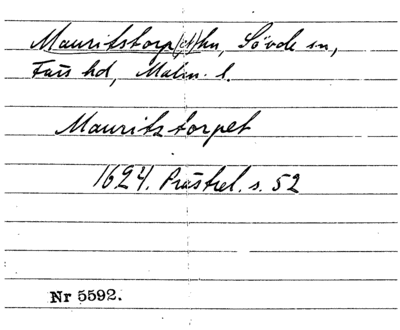 Mauritstorp(et) hn, Sövde sn,
Färs hd, Malm. l.
Mauritstorpet
1624. Prästrel. s. 52
Nr 5592.